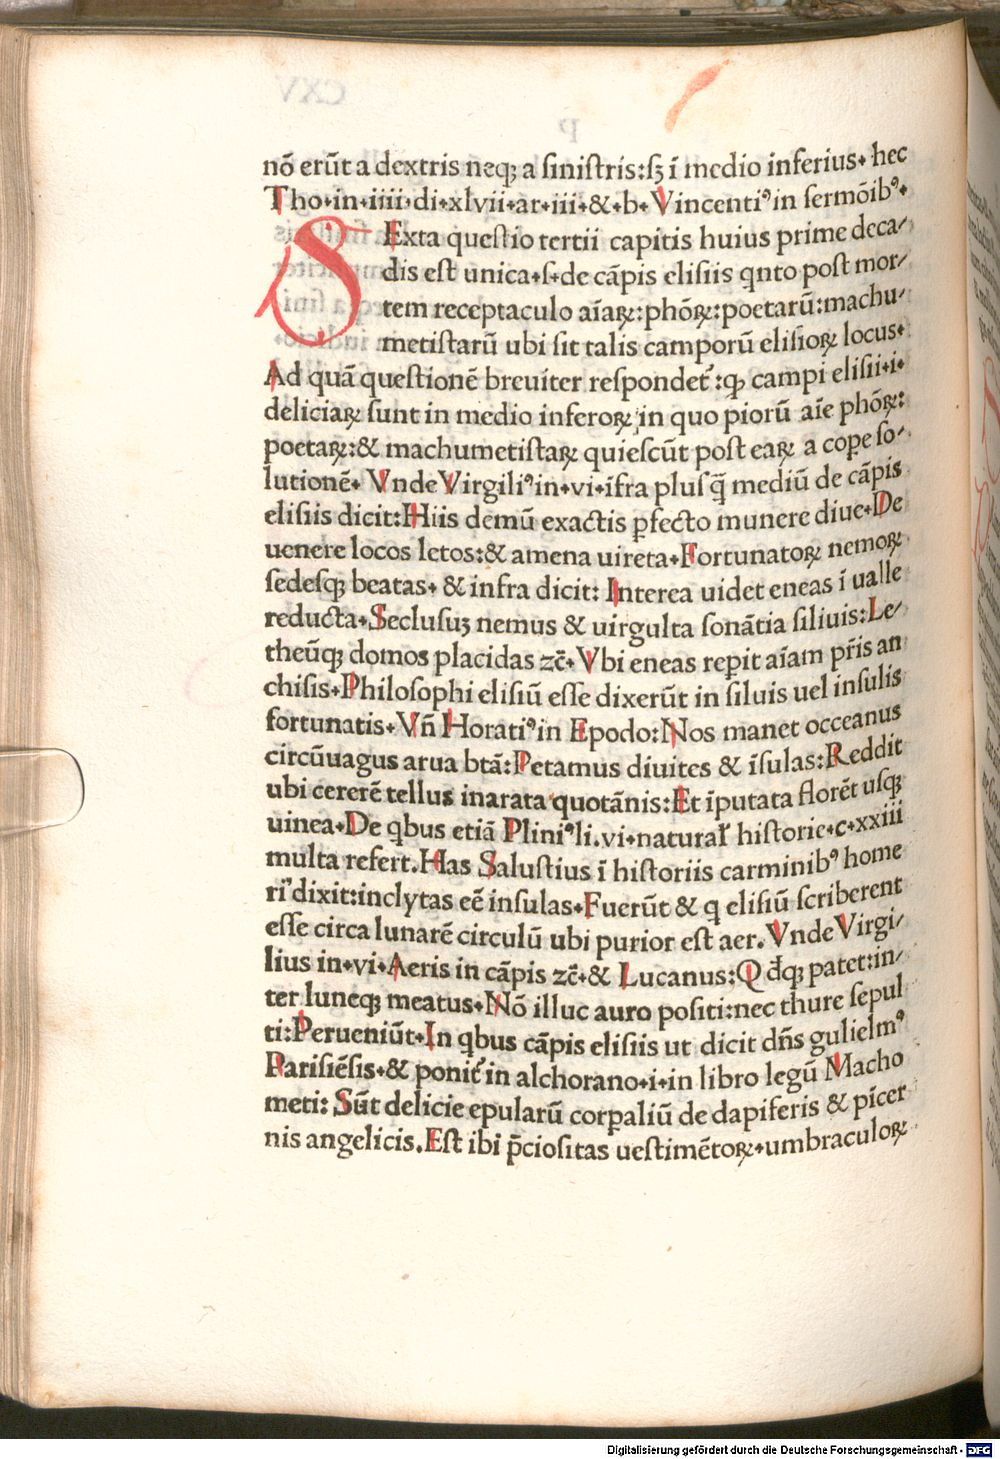 nō erūt a dextris neqꝫ a ſiniſtris:ſꝫ ī medio inferius· hec
Tho·in·iiii·di·xlvii·ar·iii·&·b·Vincentiꝰ in ſermōibꝰ·
SExta queſtio tertii capitis huius prime deca⸗
dis eſt unica·ſ·de cāpis eliſiis qnto poſt mor⸗
tem receptaculo aīaꝝ:phōꝝ:poetarū:machu⸗
metiſtarū ubi ſit talis camporū eliſioꝝ locus·
Ad quā queſtionē breuiter reſpondet᷑:ꝙ campi eliſii·i·
deliciaꝝ ſunt in medio inferoꝝ in quo piorū aīe phōꝝ:
poetaꝝ:& machumetiſtaꝝ quieſcūt poſt eaꝝ a coꝑe ſo⸗
lutionē· Vnde Virgiliꝰ in·vi·īfra pluſq̄ mediū de cāpis
eliſiis dicit:Hiis demū exactis ꝑfecto munere diue·De
uenere locos letos:& amena uireta·Fortunatoꝝ nemoꝝ
ſedeſqꝫ beatas· & infra dicit: Interea uidet eneas ī ualle
reducta·Secluſuꝫ nemus & uirgulta ſonātia ſiliuis:Le⸗
theūqꝫ domos placidas zc̄·Vbi eneas reꝑit aīam pr̄is an
chiſis·Philoſophi eliſiū eſſe dixerūt in ſiluis uel inſulis
fortunatis·Vn̄ Horatiꝰ in Epodo:Nos manet occeanus
circūuagus arua btā:Petamus diuites & īſulas:Reddit
ubi cererē tellus inarata quotānis:Et īputata florēt uſqꝫ
uinea·De qbus etiā Pliniꝰ li.vi·natural᷑ hiſtorie·c·xxiii
multa refert.Has Saluſtius ī hiſtoriis carminibꝰ home
ri dixit:inclytas eē inſulas·Fuerūt & q eliſiū ſcriberent
eſſe circa lunarē circulū ubi purior eſt aer.Vnde Virgi⸗
lius in·vi·Aeris in cāpis zc̄·& Lucanus:Qd̄qꝫ patet:in⸗
ter luneqꝫ meatus·Nō illuc auro poſiti:nec thure ſepul
ti:Perueniūt·In qbus cāpis eliſiis ut dicit dn̄s gulielmꝰ
Pariſiēſis·& ponit᷑ in alchorano·i·in libro legū Macho
meti: Sūt delicie epularū corꝑaliū de dapiferis & pīcer
nis angelicis.Eſt ibi p̄cioſitas ueſtimētoꝝ·umbraculoꝝ
Digitalisierung gefördert durch die Deutsche Forschungsgemeinschaft - DFG